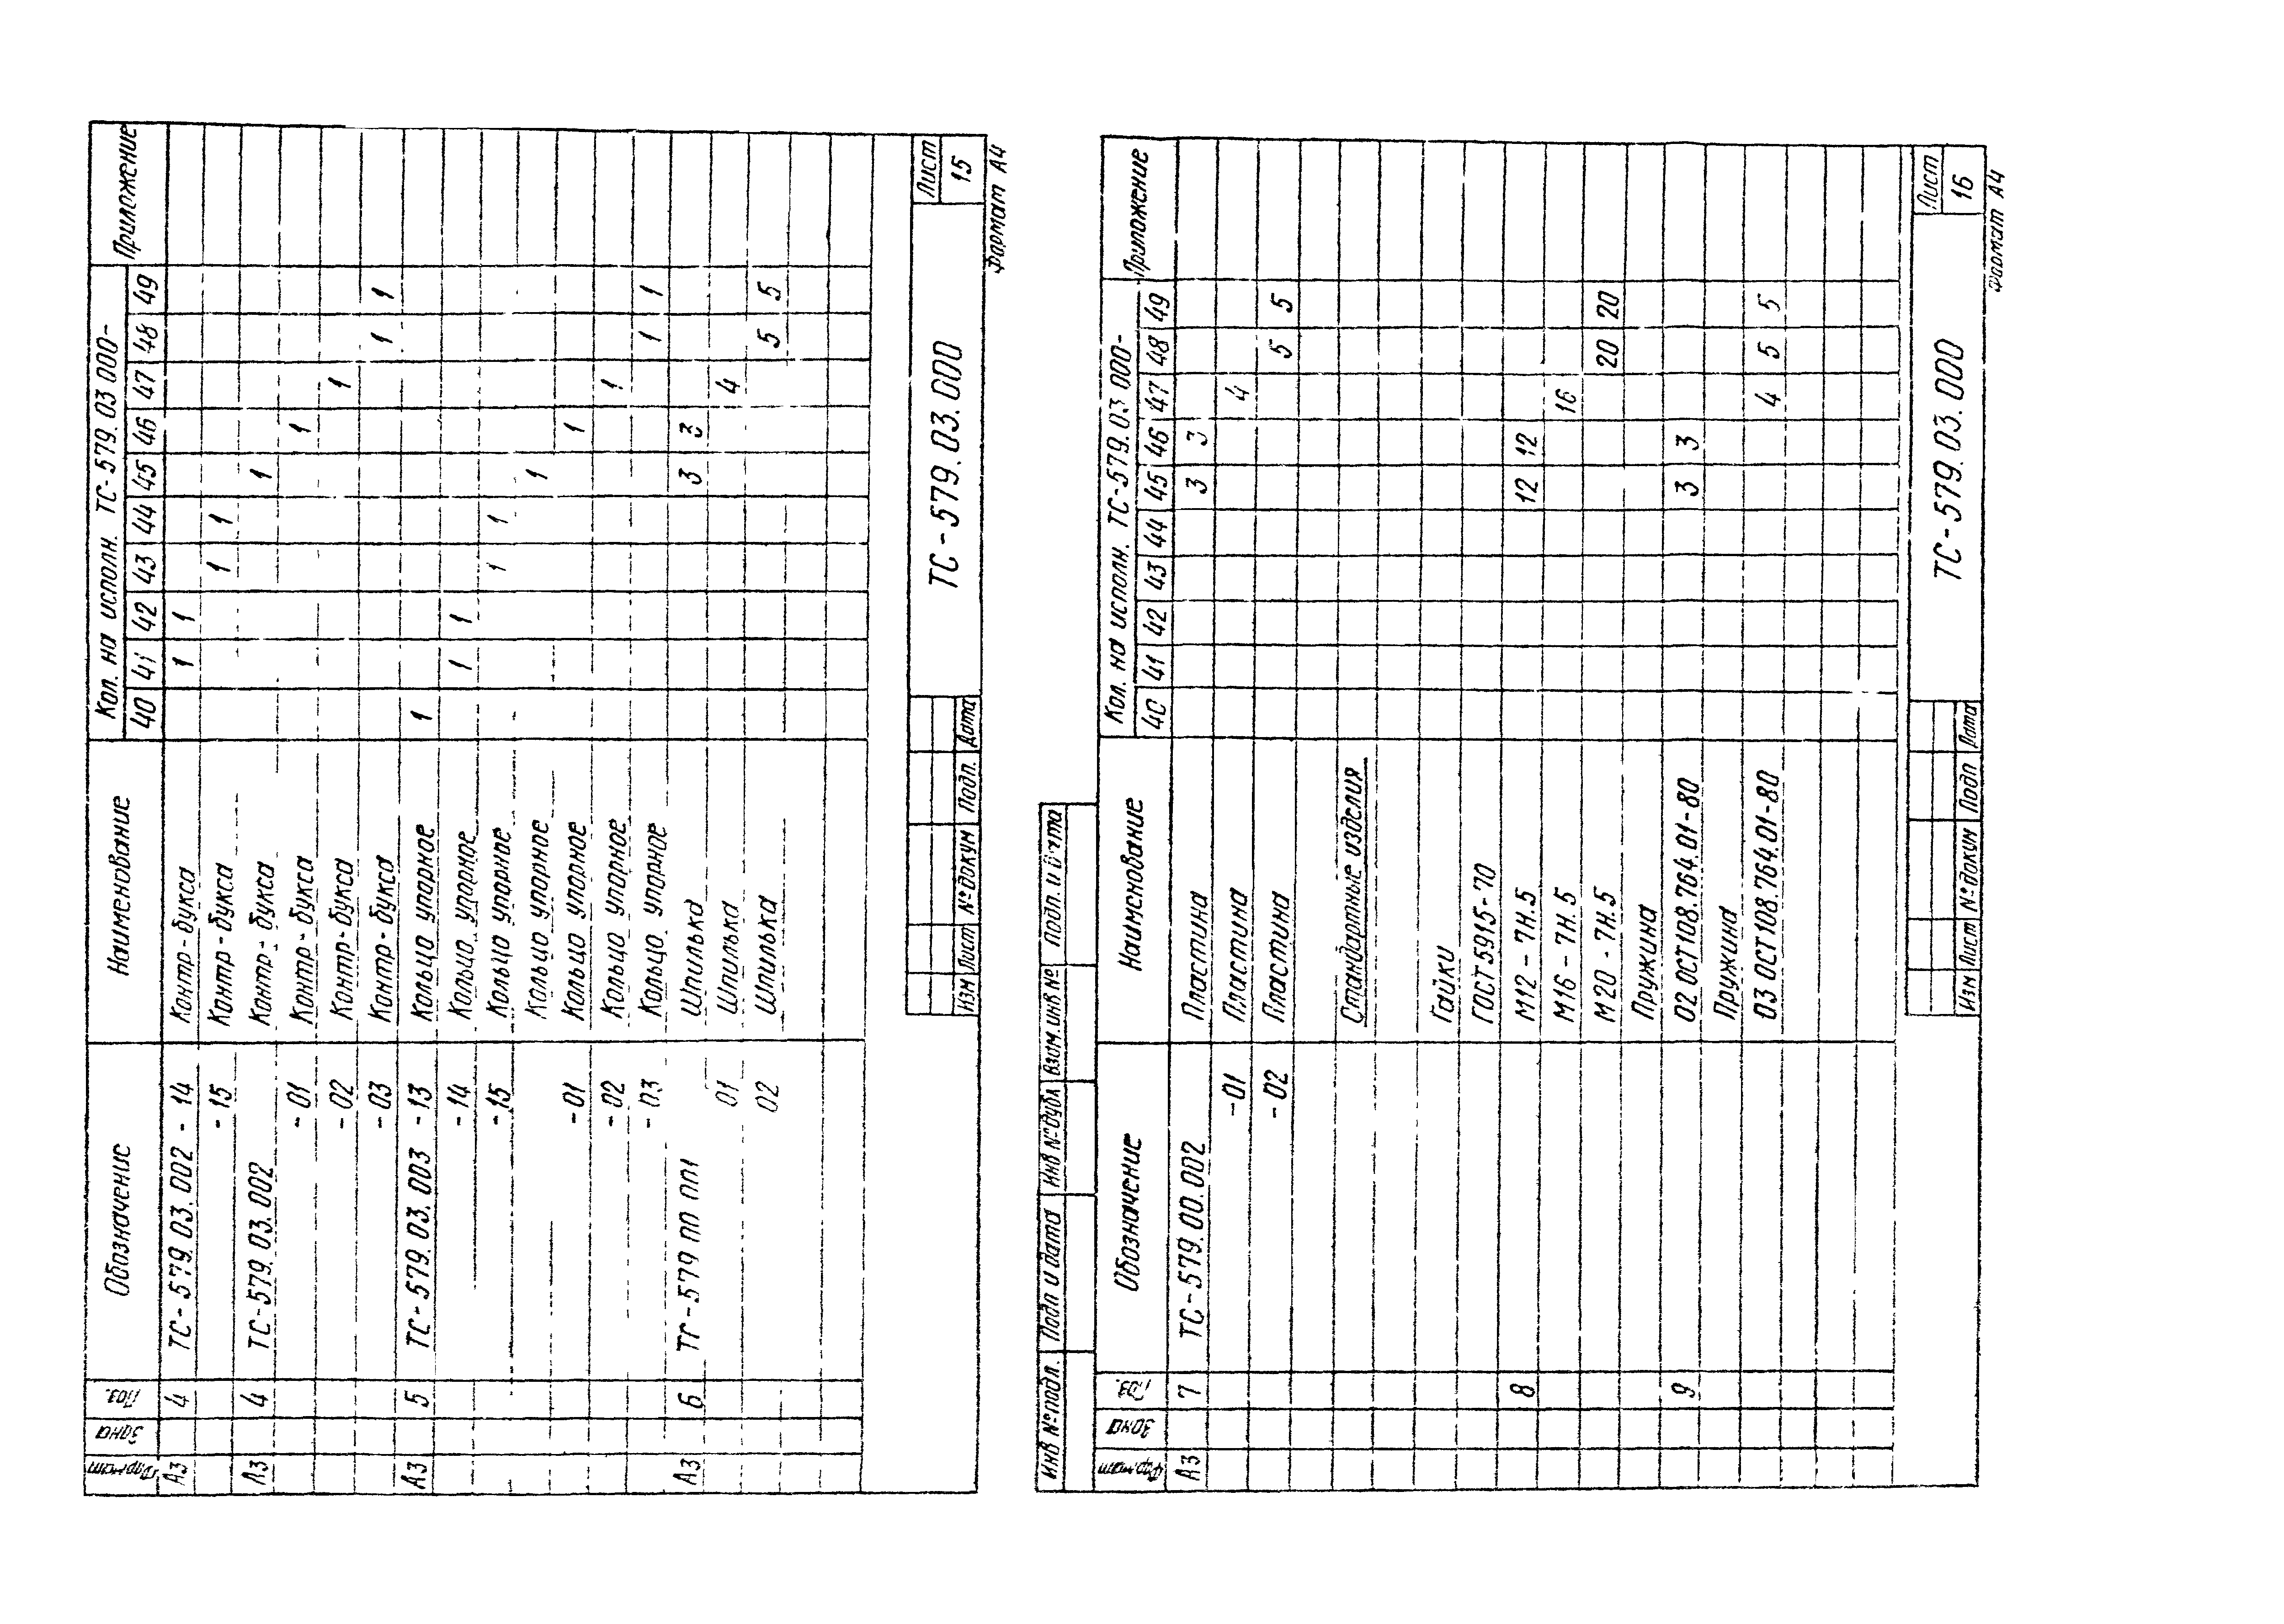 Формат Зона Поз. Обозначение Наименование Кол. на исполн. ТС-579.03 000- Приложение
40 41 42 43 44 45 46 47 48 49
А3 4 ТС-579.03.002 - 14 Контр-букса 1 1
- 15 Контр-букса 1 1
А3 4 ТС-579.03.002 Контр-букса 1
- 01 Контр-букса 1
- 02 Контр-букса 1
- 03 Контр-букса 1 1
А3 5 ТС-579.03.003 - 13 Кольцо упорное 1
- 14 Кольцо упорное 1 1
- 15 Кольцо упорное 1 1
Кольцо упорное 1
- 01 Кольцо упорное 1
- 02 Кольцо упорное 1
- 03 Кольцо упорное 1 1
А3 6 ТС-579 00 001 Шпилька 3 3
01 Шпилька 4
02 Шпилька 5 5
Изм Лист №докум Подп. Дата
ТС-579.03.000
Лист
15
Формат А4
Инв №подл. Подп и дата Инв №дубл Взам.инв № Подп. и дата
Формат Зона Поз. Обозначение Наименование Кол. на исполн. ТС-579.03 000- Приложение
40 41 42 43 44 45 46 47 48 49
А3 7 ТС-579.00.002 Пластина 3 3
- 01 Пластина 4
- 02 Пластина 5 5
Стандартные изделия
Гайки
ГОСТ 5915-70
8 М12 - 7Н.5 12 12
М16 - 7Н.5 16
М20 - 7Н.5 20 20
Пружина
9 02 ОСТ108.764.01-80 3 3
Пружина
03 ОСТ108.764.01-80 4 5 5
Изм Лист №докум Подп Дата
ТС-579.03.000
Лист
16
Формат А4